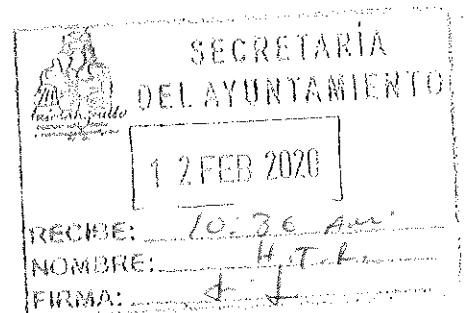 SECRETARÍA
DEL AYUNTAMIENTO
12 FEB 2020
RECIBE: 10:36 Am.
NOMBRE: H.T.L.
FIRMA: